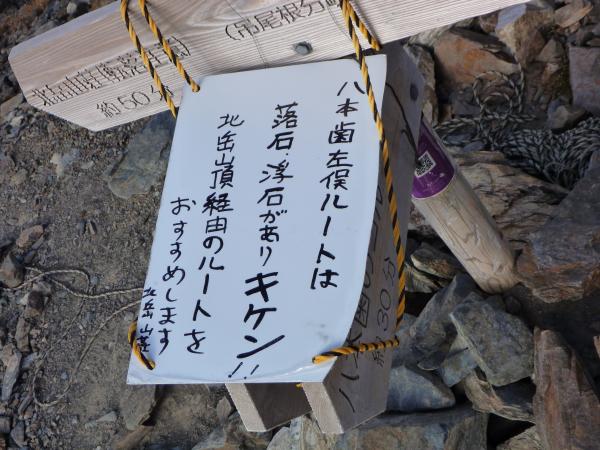 八本歯左俣ルートは
落石 浮石があり キケン!!
北岳山頂経由のルートを
おすすめします
北岳山荘
(吊尾根分岐
約50分
約30分